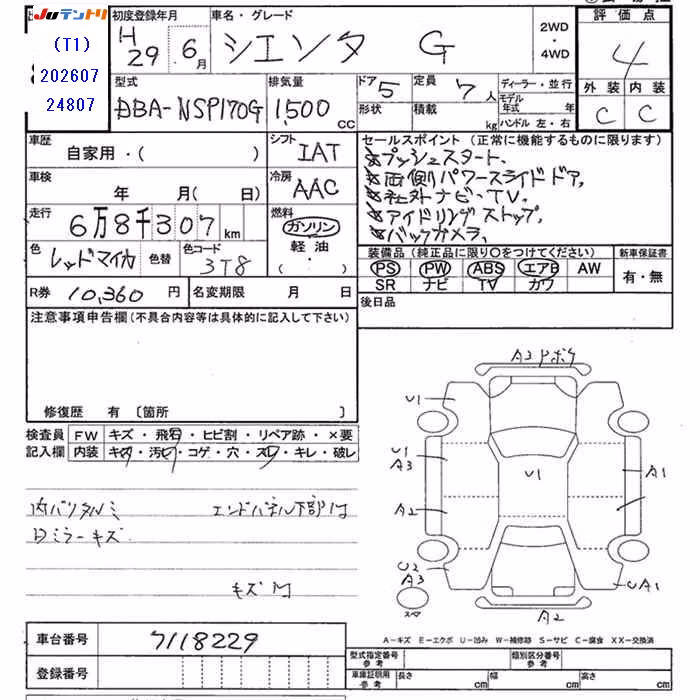 Juテントリ
(T1)
202607
24807
初度登録年月
H29年6月
車名・グレード
シエンタ G
2WD
・
4WD
評価点
4
外装 内装
C C
型式
DBA-NSP170G
排気量
1,500cc
ドア 5
形状
定員 7人
積載 kg
ディーラー・並行
モデル年式 年
ハンドル 左・右
車歴
自家用・( )
シフト
IAT
車検
年 月( )
冷房
AAC
走行
6万8千307km
燃料
ガソリン
軽油・
( ・ )
色
レッドマイカ
色替
色コード
3T8
セールスポイント(正常に機能するものに限ります)
★プッシュスタート、
★両側パワースライドドア、
★社外ナビ・TV、
★アイドリングストップ、
★バックカメラ、
装備品(純正品に限り○をつけてください)
PS PW ABS エアB AW
SR ナビ TV カワ
新車保証書
有・無
R券 10,360円
名変期限 月 日
後日品
注意事項申告欄(不具合内容等は具体的に記入して下さい)
修復歴 有 〔箇所 〕
検査員
記入欄
FW キズ・飛石・ヒビ割・リペア跡・×要
内装 キズ・汚レ・コゲ・穴・スレ・キレ・破レ
内バリタルミ
エンドパネル下部凹
Dミラーキズ
キズ凹
A2
U1
U1
A3
U1
A1
A2
U2
A3
UA1
スペア
A2
A−キズ E−エクボ U−凹み W−補修跡 S−サビ C−腐食 XX−交換済
車台番号
7118229
登録番号
型式指定番号
参考
類別区分番号
参考
車庫証明用
参考
長さ cm
幅 cm
高さ cm